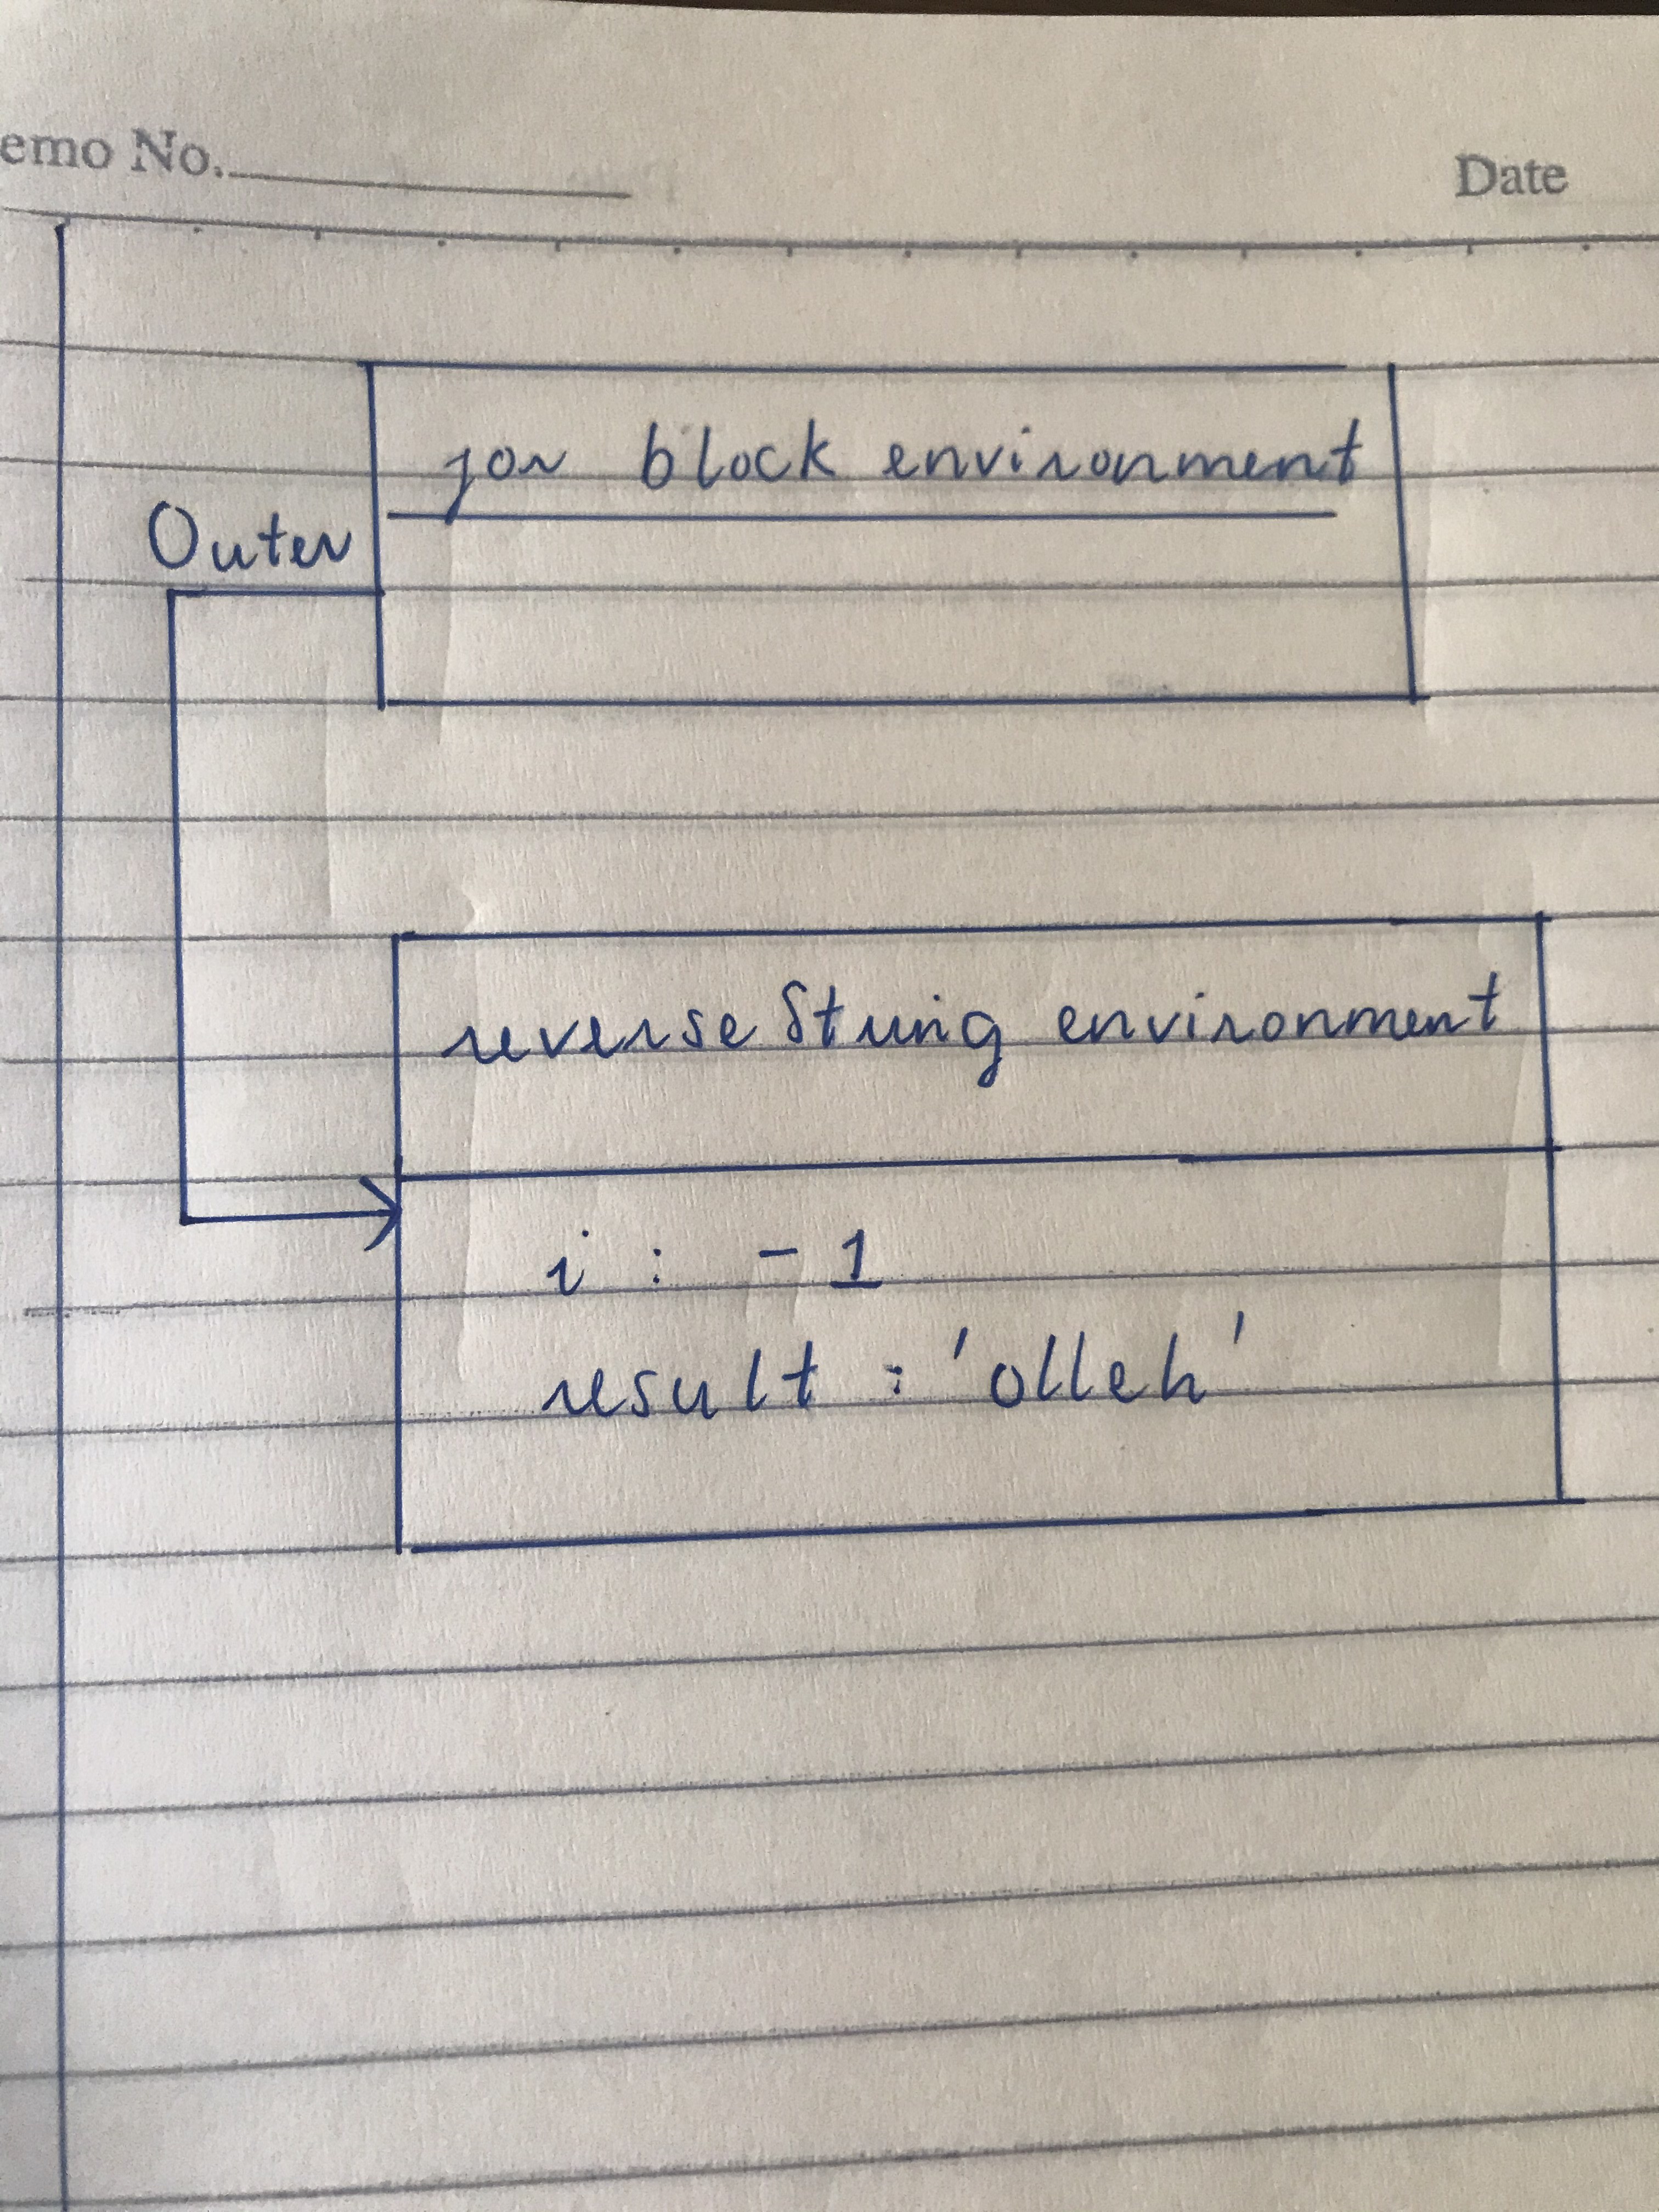 emo No.
Date
for block environment
Outer
reverseString environment
i : - 1
result : 'olleh'